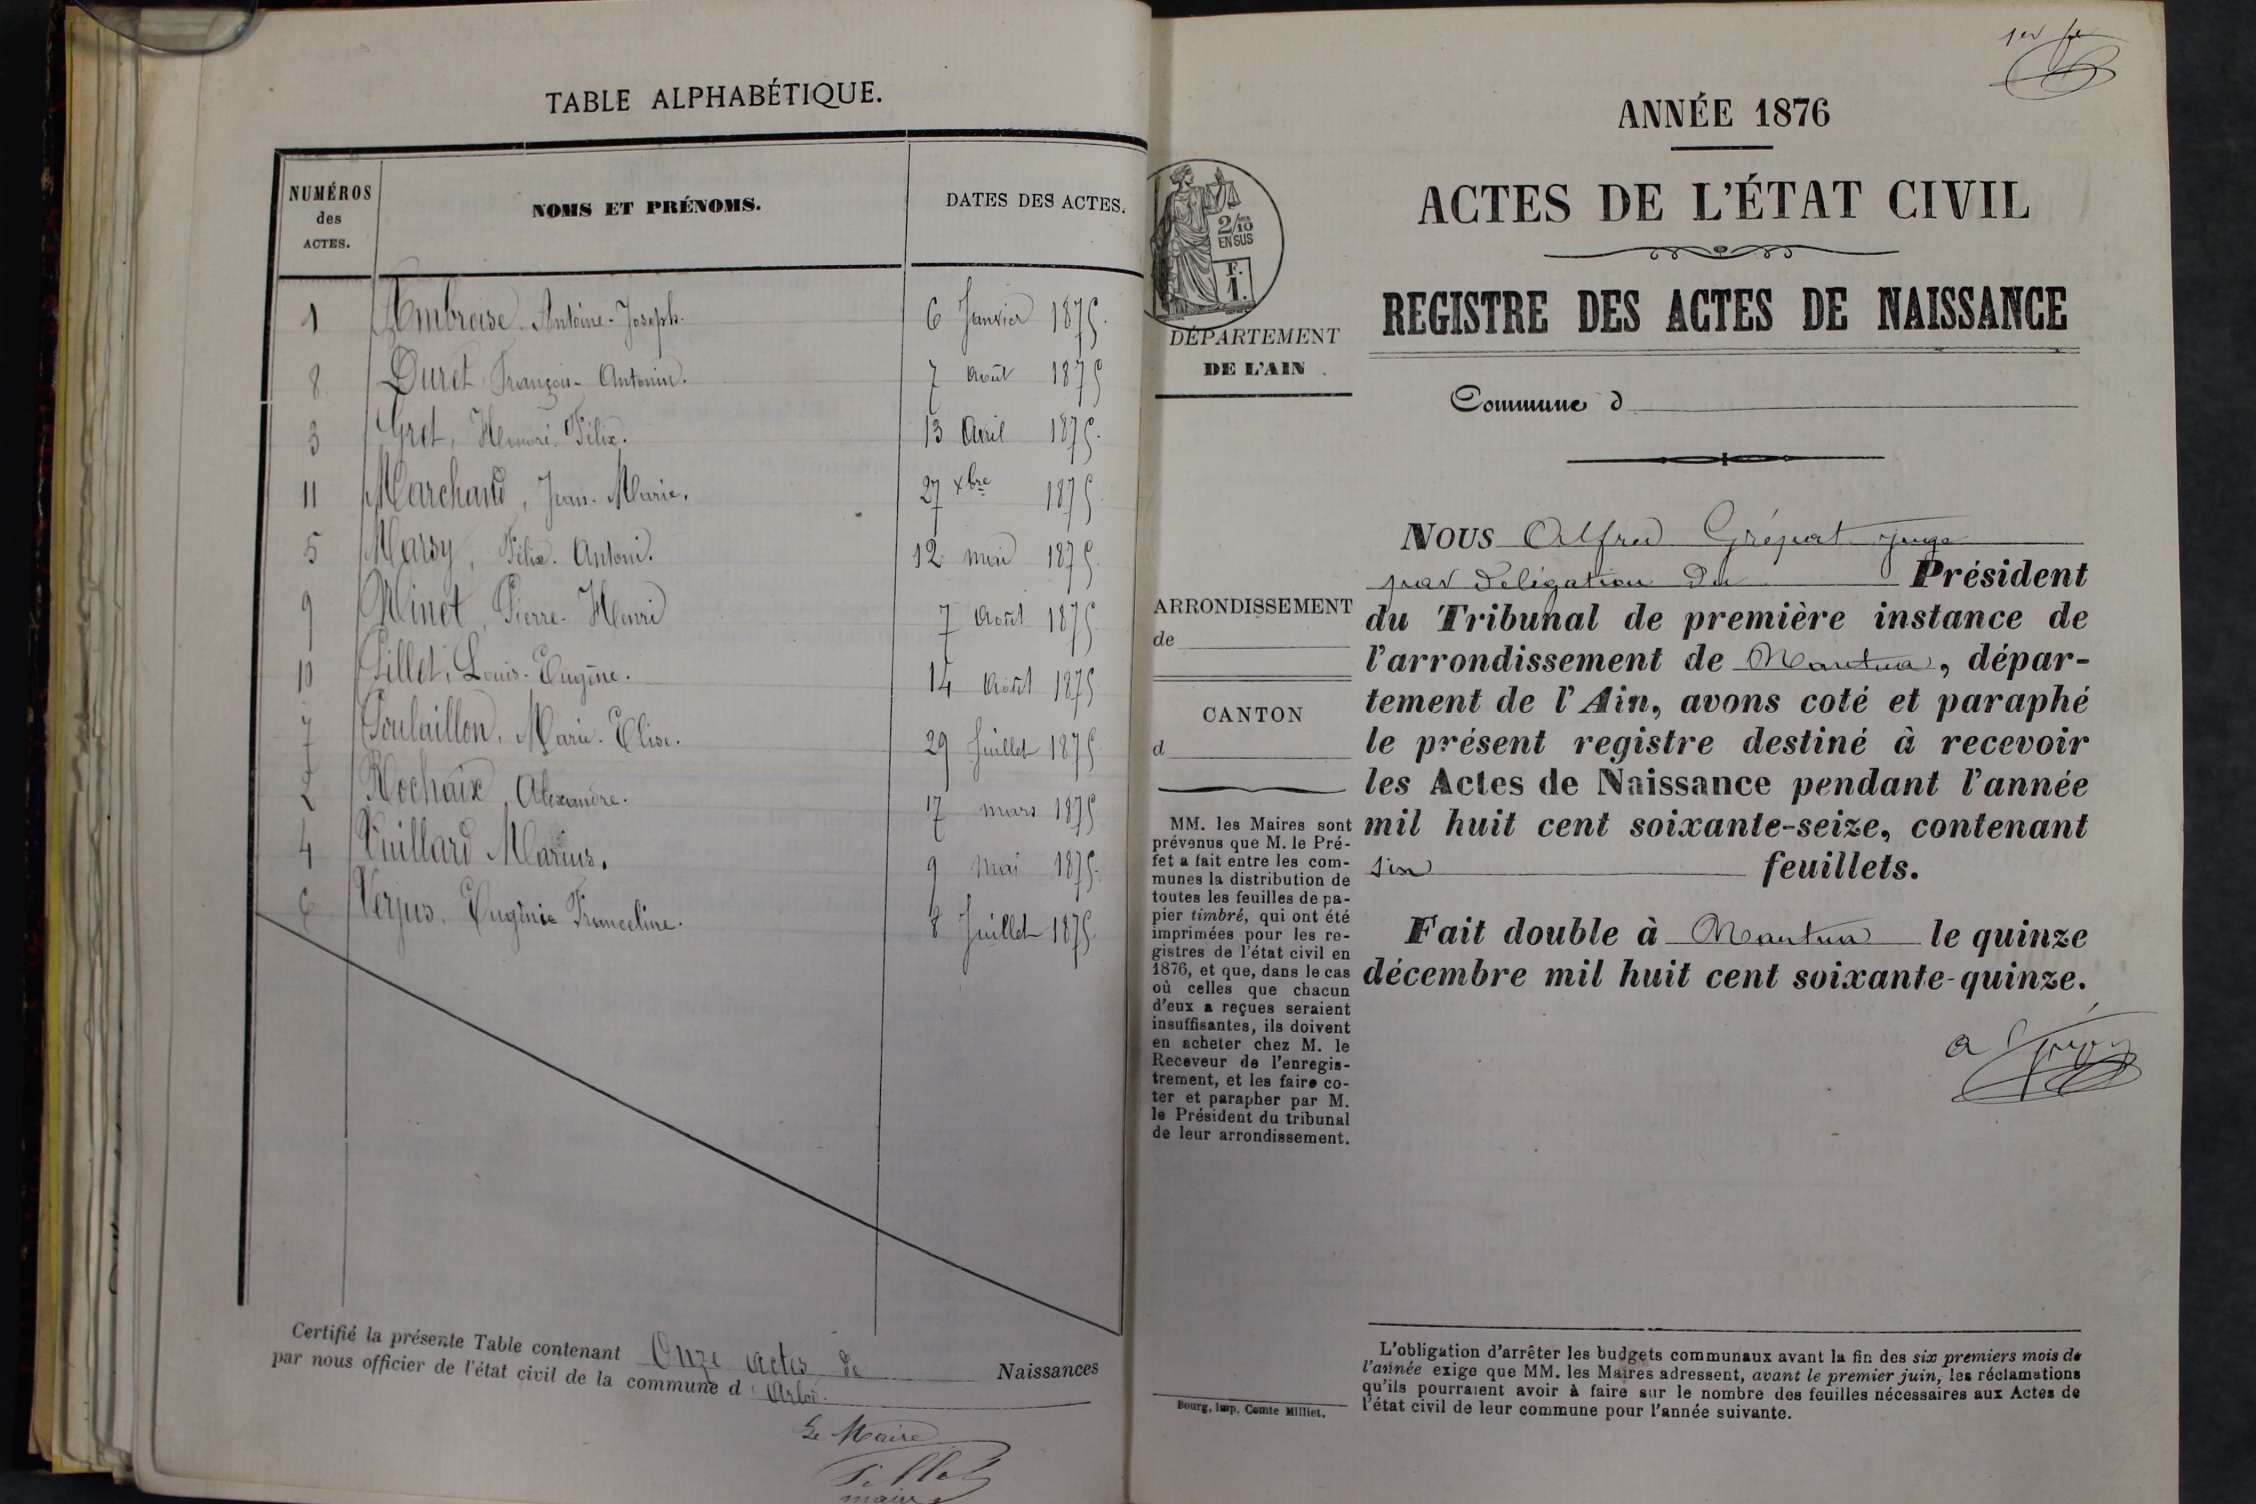 TABLE ALPHABÉTIQUE.
NUMÉROS des ACTES. NOMS ET PRÉNOMS. DATES DES ACTES.
1 Ambroise, Antoine-Joseph. 6 Janvier 1875.
8 Duret François-Antonin. 7 Août 1875
3 Gret, Honoré Félix. 13 Avril 1875.
11 Marchand, Jean-Marie. 27 Xbre 1875.
5 Marsy, Félix. Antoni. 12 mai 1875.
9 Minet, Pierre-Henri 7 Août 1875
10 Pillet, Louis-Eugène. 14 Août 1875
7 Poulaillon, Marie-Elise. 29 Juillet 1875
2 Rochaix, Alexandre. 17 mars 1875
4 Vuillard Marius. 9 Mai 1875.
6 Verjus, Eugénie Franceline. 8 Juillet 1875.
Certifié la présente Table contenant Onze actes de Naissances
par nous officier de l'état civil de la commune d
Le Maire
Pillet
maire
1er
ANNÉE 1876
ACTES DE L'ÉTAT CIVIL
REGISTRE DES ACTES DE NAISSANCE
2/10
EN SUS
F.
1.
DÉPARTEMENT
DE L'AIN
Commune d
ARRONDISSEMENT
de
CANTON
d
MM. les Maires sont
prévenus que M. le Pré-
fet a fait entre les com-
munes la distribution de
toutes les feuilles de pa-
pier timbré, qui ont été
imprimées pour les re-
gistres de l'état civil en
1876, et que, dans le cas
où celles que chacun
d'eux a reçues seraient
insuffisantes, ils doivent
en acheter chez M. le
Receveur de l'enregis-
trement, et les faire co-
ter et parapher par M.
le Président du tribunal
de leur arrondissement.
Bourg, imp. Comte Milliet.
NOUS Alfred juge
par délégation du Président
du Tribunal de première instance de
l'arrondissement de Nantua, dépar-
tement de l'Ain, avons coté et paraphé
le présent registre destiné à recevoir
les Actes de Naissance pendant l'année
mil huit cent soixante-seize, contenant
six feuillets.
Fait double à Nantua le quinze
décembre mil huit cent soixante-quinze.
L'obligation d'arrêter les budgets communaux avant la fin des six premiers mois de
l'année exige que MM. les Maires adressent, avant le premier juin, les réclamations
qu'ils pourraient avoir à faire sur le nombre des feuilles nécessaires aux Actes de
l'état civil de leur commune pour l'année suivante.